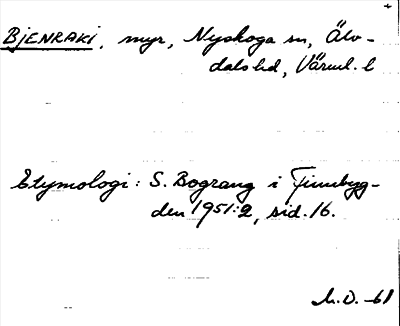 BJENRAKI, myr, Nyskoga sn, Älv-
dals hd, Värml. l
Etymologi: S. Bograng i Finnbyg-
den 1951:2, sid. 16.
M.O. -61